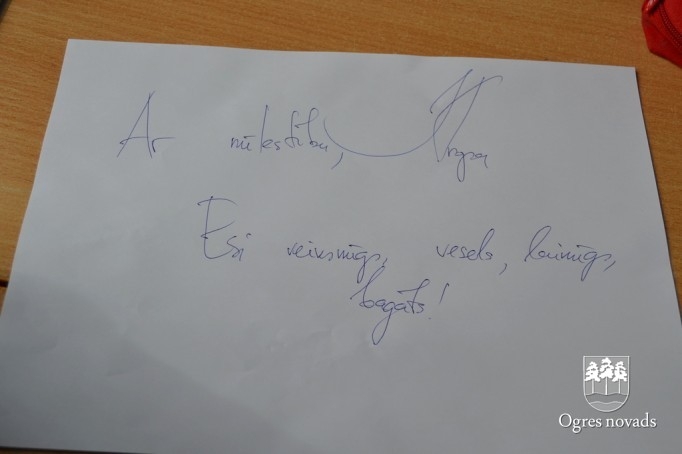 Ar mīlestību,
Esi veiksmīgs, vesels, laimīgs,
bagāts!
Ogres novads